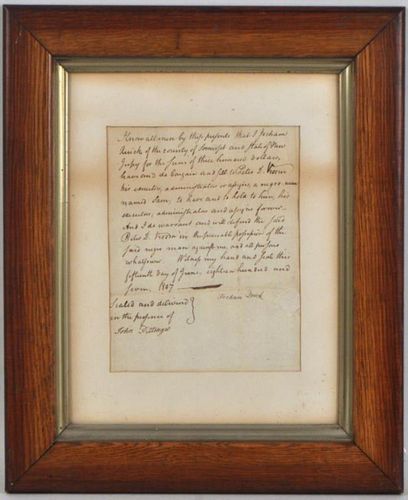 Know all men by these presents that I Jocham
Quick of the county of Somerset and State of New
Jersey for the Sum of three hundred dollars,
have and do bargain and sell to Peter D. Vroom
his executors, administrators or assigns, a negro man
named Sam, to have and to hold to him, his
executors, administrators and assigns forever.
And I do warrant and will defend the said
Peter D. Vroom in the peaceable possession of the
said negro man against me, and all persons
whatsoever. Witness my hand and seal this
fifteenth day of June, eighteen hundred and
seven. 1807
Sealed and delivered
in the presence of
Jocham Quick
John